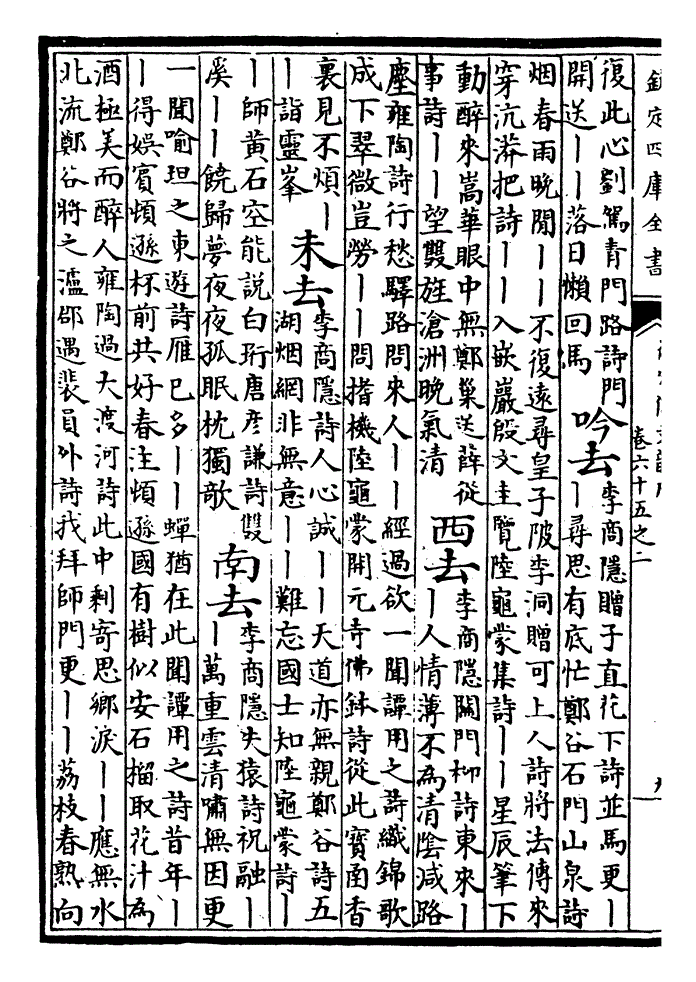 欽定四庫全書
卷六十五之二
復此心劉駕青門路詩門
開送||落日懶回馬
吟去
李商隱贈子直花下詩並馬更|
|尋思有底忙鄭谷石門山泉詩
烟春雨晚閒||不復遠尋皇子陂李洞贈可上人詩將法傳來
穿沆漭把詩||入嵌巖殷文圭覽陸龜蒙集詩||星辰筆下
動醉來嵩華眼中無鄭巢送薛從
事詩||望雙旌滄洲晚氣清
西去
李商隱關門柳詩東來|
|人情薄不為清陰減路
塵雍陶詩行愁驛路問來人||經過欲一聞譚用之詩織錦歌
成下翠微豈勞||問揩機陸龜蒙開元寺佛鉢詩從此寶函香
裏見不煩|
|詣靈峯
未去
李商隱詩人心誠||天道亦無親鄭谷詩五
湖烟網非無意||難忘國士知陸龜蒙詩|
|師黃石空能說白珩唐彥謙詩雙
溪||饒歸夢夜夜孤眠枕獨欹
南去
李商隱失猿詩祝融|
|萬重雲清嘯無因更
一聞喻坦之東遊詩雁已多||蟬猶在此聞譚用之詩昔年|
|得娛賓頓遜杯前共好春注頓遜國有樹似安石榴取花汁為
酒極美而醉人雍陶過大渡河詩此中剩寄思鄉淚||應無水
北流鄭谷將之瀘郡遇裴員外詩我拜師門更||荔枝春熟向